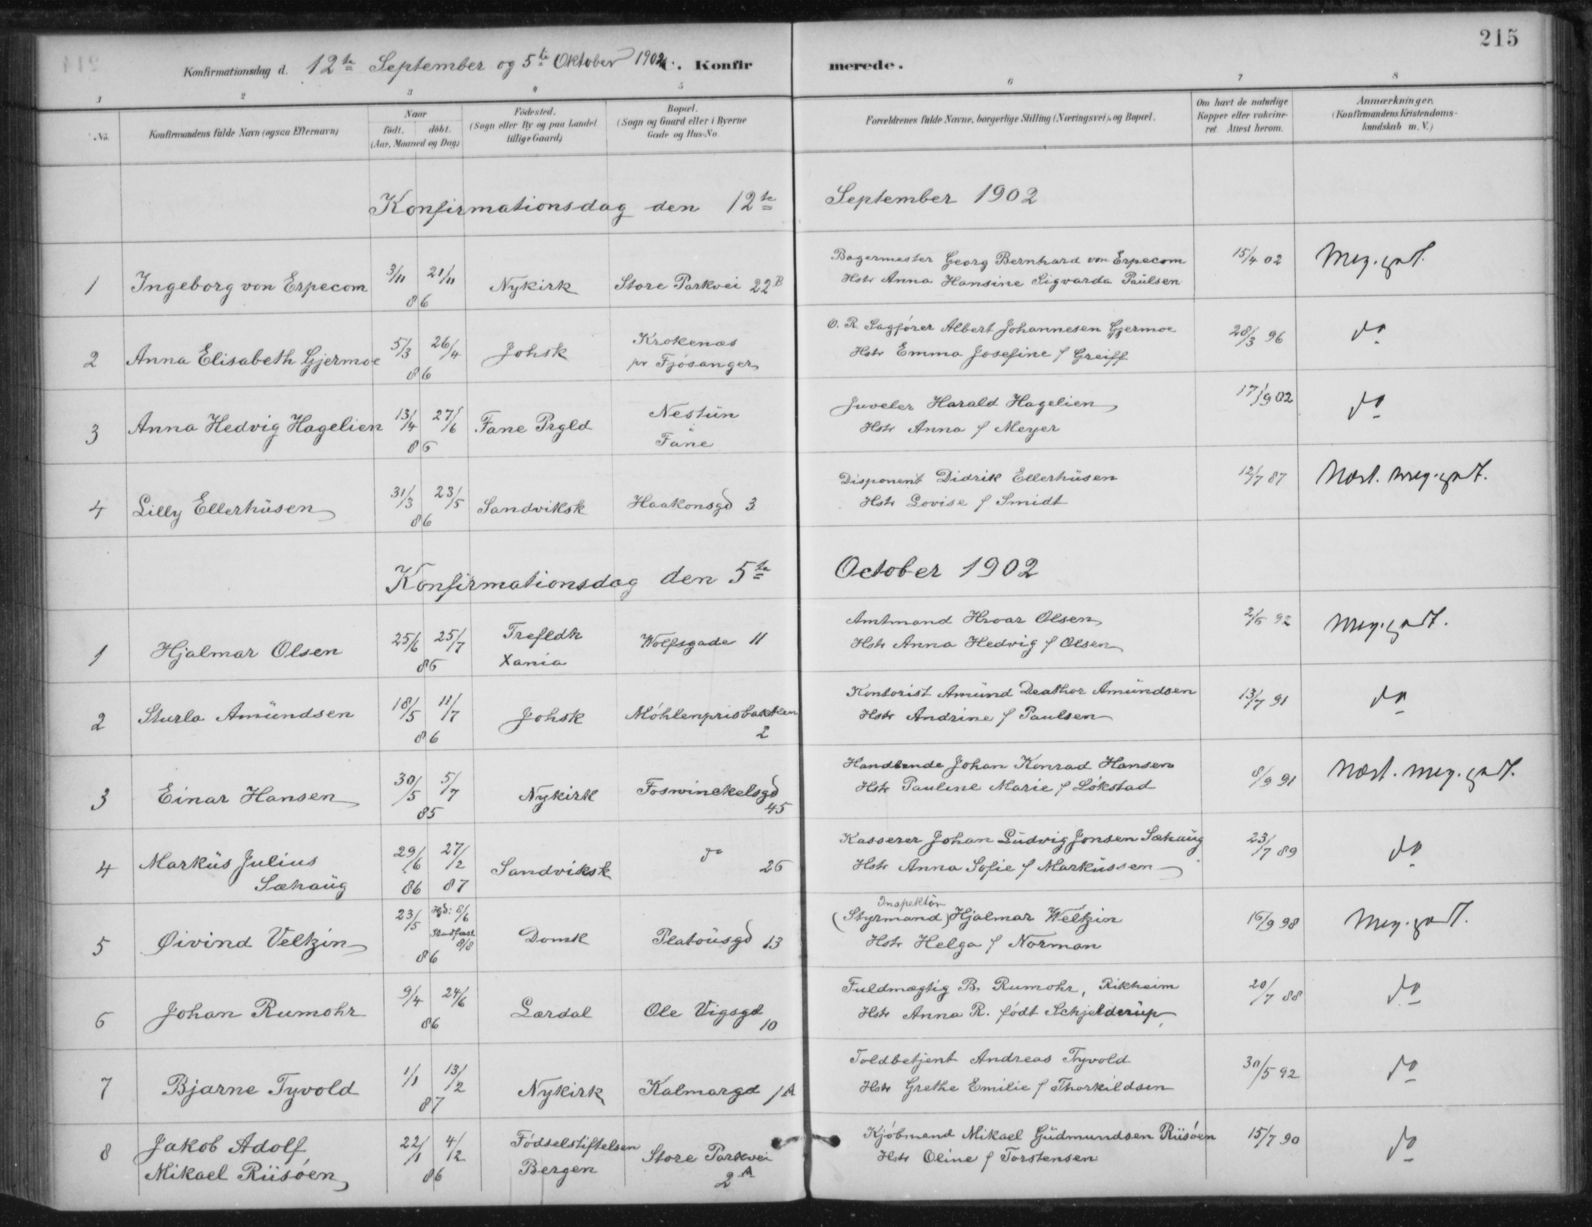 215
Konfirmationsdag d. 12te September og 5te Oktober 1902. Konfirmerede.
1 2 3 4 5 6 7 8
No. Konfirmandens fulde Navn (ogsaa Efternavn) Naar født. døbt. (Aar, Maaned og Dag) Fødested. (Sogn eller By og paa Landet tillige Gaard) Bopæl. (Sogn og Gaard eller i Byerne Gade og Hus-No. Forældrenes fulde Navne, borgerlige Stilling (Næringsvei), og Bopæl. Om havt de naturlige Kopper eller vakcineret. Attest herom. Anmærkninger. (Konfirmandens Kristendomskundskab m. V.)
Konfirmationsdag den 12te September 1902
1 Ingeborg von Erpecom 3/11 21/11 86 Nykirk Store Parkvei 22B Bagermester Georg Bernhard von Erpecom Hstr Anna Hansine Sigvarda Paulsen 15/4 02 Meg. godt.
2 Anna Elisabeth Gjermoe 5/3 26/4 86 Johsk Krokenæs pr Fjøsanger O. R. Sagfører Albert Johannesen Gjermoe Hstr Emma Josefine f Greiff 28/3 96 do
3 Anna Hedvig Hagelien 13/4 27/6 86 Fane Prgld Nestun Fane Juveler Harald Hagelien Hstr Anna f Meyer 17/9 02 do
4 Lilly Ellerhüsen 31/3 23/5 86 Sandviksk Haakonsgd 3 Disponent Didrik Ellerhüsen Hstr Lovise f Smidt 12/7 87 Næst. meg. godt.
Konfirmationsdag den 5te October 1902
1 Hjalmar Olsen 25/6 25/7 86 Trefldk Xania Wolfsgade 11 Amtmand Hroar Olsen Hstr Anna Hedvig f Olsen 2/5 92 Meg. godt.
2 Sturla Amündsen 18/5 11/7 86 Johsk Møhlenprisbakken 2 Kontorist Amünd Amündsen Hstr Andrine f Paulsen 13/7 91 do
3 Einar Hansen 30/5 5/7 85 Nykirk Foswinckelsgd 45 Handlende Johan Konrad Hansen Hstr Pauline Marie f Løkstad 8/9 91 Næst. meg. godt.
4 Marküs Julius Sæhaüg 29/6 86 27/2 87 Sandviksk do 26 Kasserer Johan Lüdvig Jonsen Sæhaüg Hstr Anna Sofie f Markussen 23/7 89 do
5 Øivind Veltzin 23/5 Hjd: 6/6 Stadfæst 8/8 86 Domk Platoüsgd 13 (Styrmand) Inspektør Hjalmar Weltzin Hstr Helga f Norman 16/9 98 Meg. godt.
6 Johan Rumohr 9/4 24/6 86 Lærdal Ole Vigsgd 10 Fuldmægtig B. Rumohr, Rikheim Hstr Anna R. født Schjelderup 20/7 88 do
7 Bjarne Tyvold 1/1 13/2 87 Nykirk Kalmargd 1A Toldbetjent Andreas Tyvold Hstr Grethe Emilie f Thorkildsen 30/5 92 do
8 Jakob Adolf Mikael Riisøen 22/1 4/2 86 Fødselstiftelsen Bergen Store Parkvei 2A Kjøbmand Mikael Güdmundsen Riisøen Hstr Oline f Torstensen 15/7 90 do